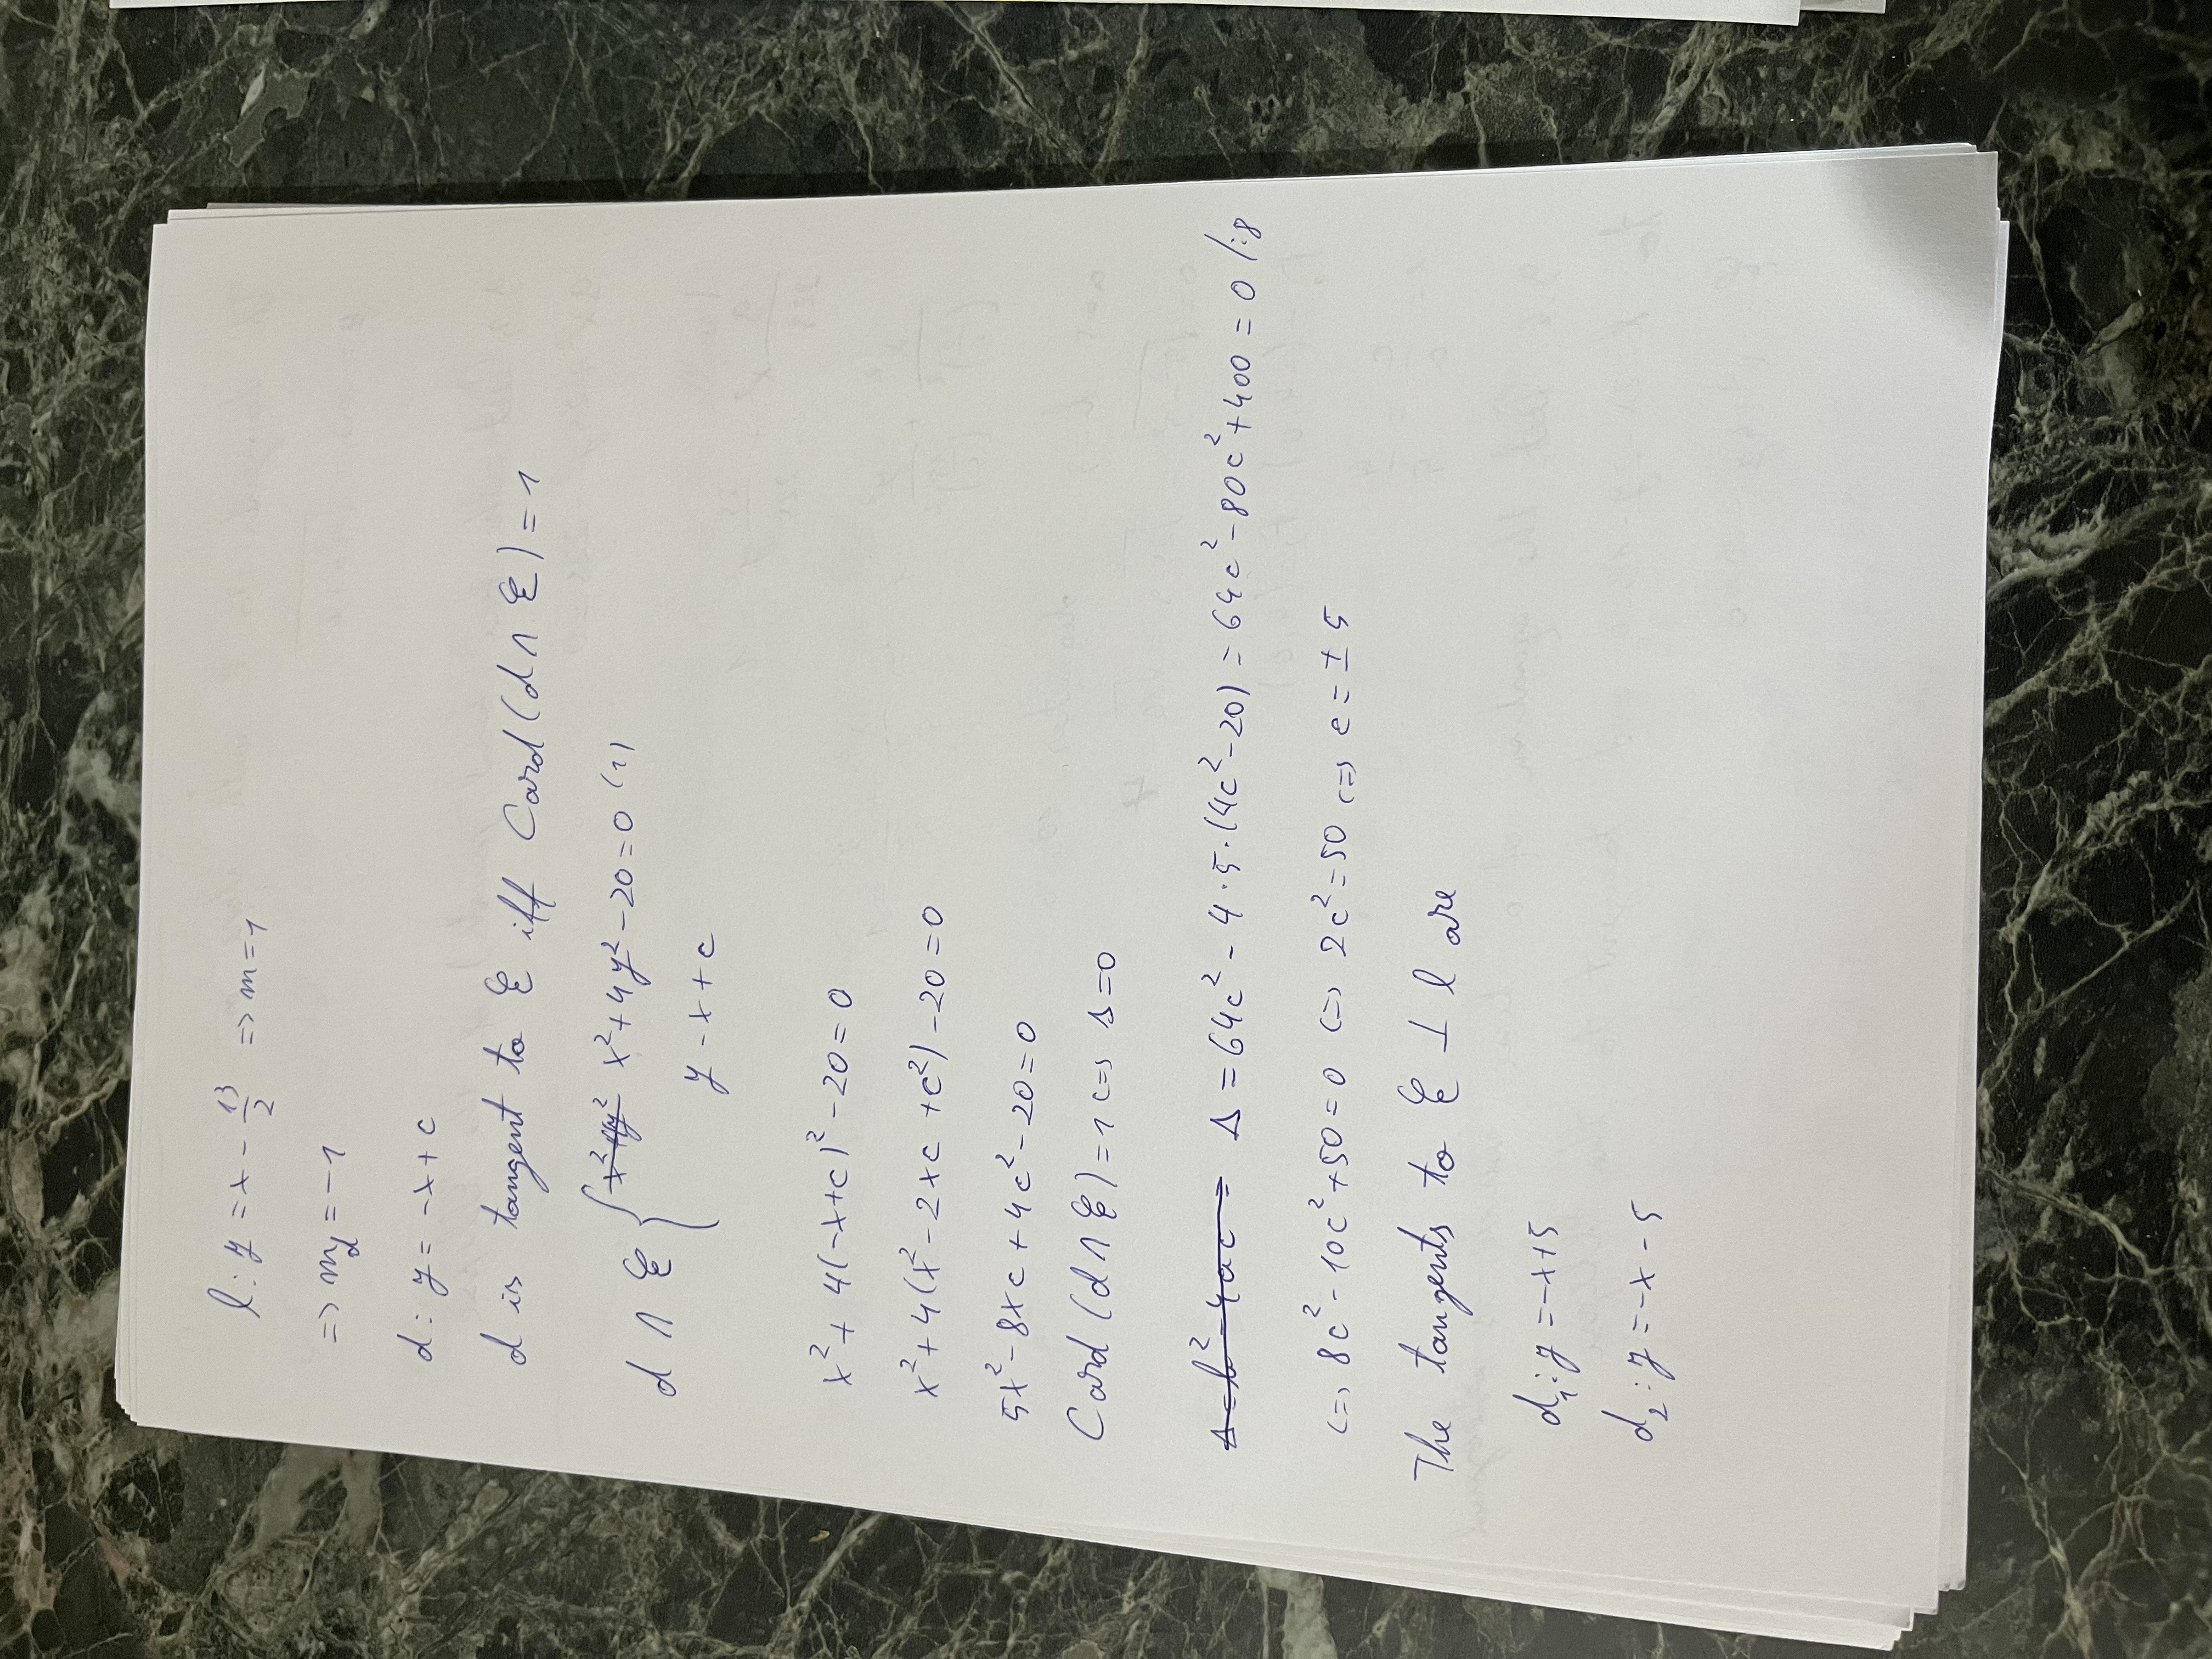 l: y = x - 13/2 => m = 1
=> m_d = -1
d: y = -x + c
d is tangent to ℰ iff Card (d ∩ ℰ) = 1
d ∩ ℰ { x² + 4y² - 20 = 0 (1)
y - x + c
x² + 4(-x+c)² - 20 = 0
x² + 4(x² - 2xc + c²) - 20 = 0
5x² - 8xc + 4c² - 20 = 0
Card (d ∩ ℰ) = 1 <=> Δ = 0
Δ = b² - 4ac = Δ = 64c² - 4·5·(4c² - 20) = 64c² - 80c² + 400 = 0 /:8
<=> 8c² - 10c² + 50 = 0 <=> 2c² = 50 <=> c = ± 5
The tangents to ℰ ⊥ l are
d₁: y = -x + 5
d₂: y = -x - 5